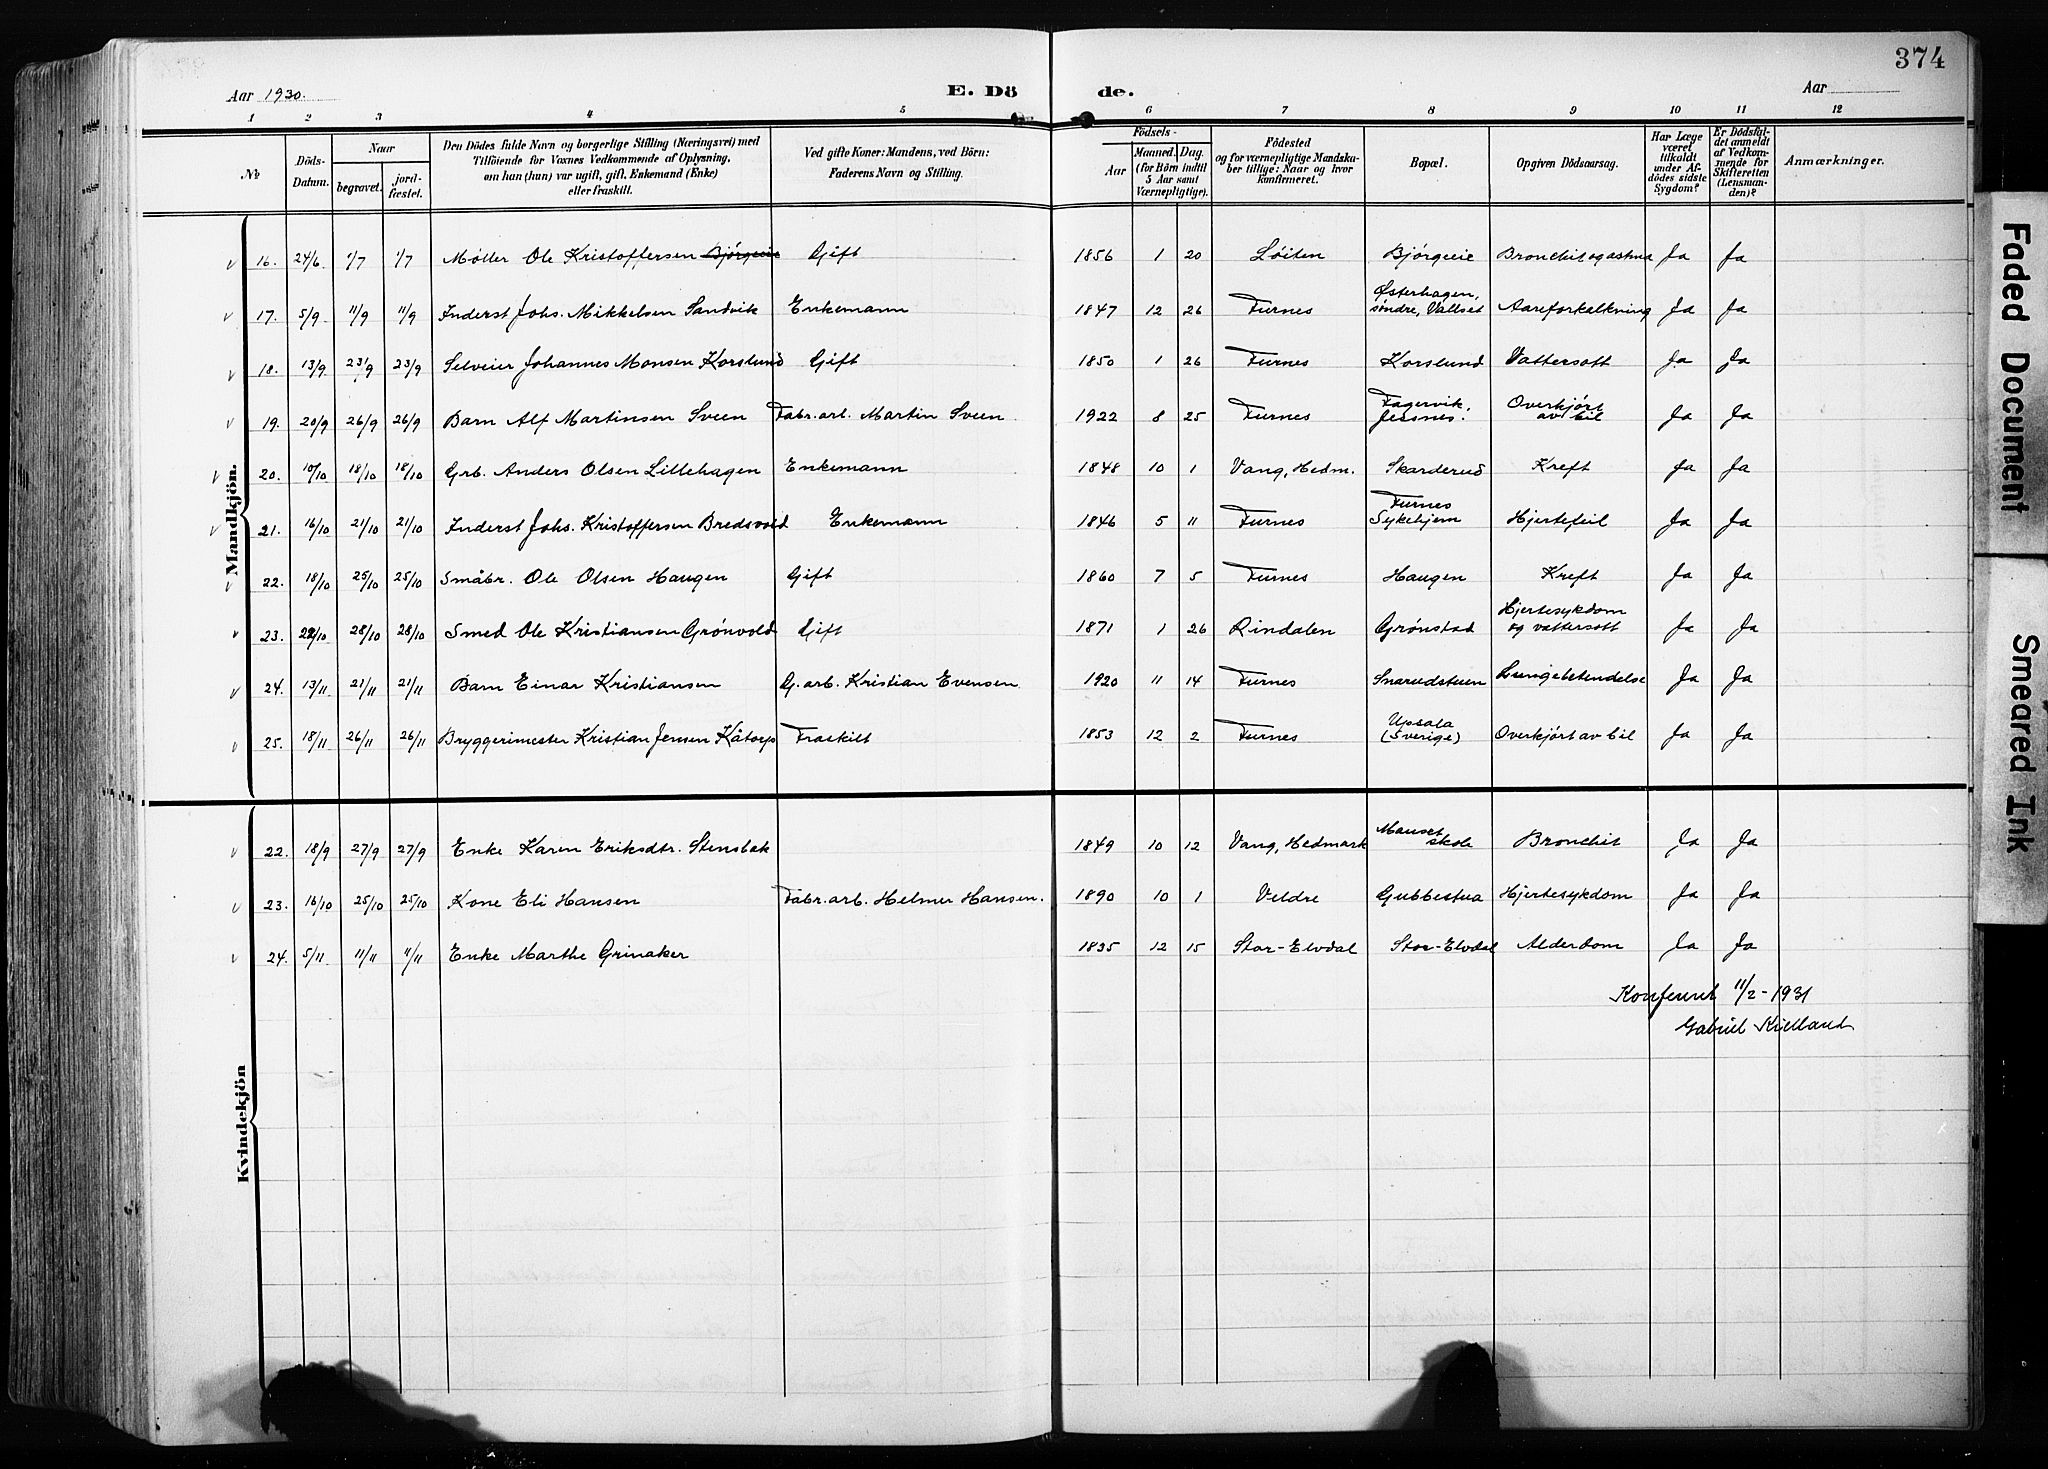 374
Aar 1930.
E. Döde.
Aar
1 2 3 4 5 6 7 8 9 10 11 12
№
Döds-Datum.
Naar
begravet.
jord-fæstet.
Den Dödes fulde Navn og borgerlige Stilling (Næringsvei) med
Tilföiende for Voxnes Vedkommende af Oplysning,
om han (hun) var ugift, gift, Enkemand (Enke)
eller fraskilt.
Ved gifte Koner: Mandens, ved Börn:
Faderens Navn og Stilling.
Födsels-
Aar
Maaned. Dag.
(for Börn indtil
5 Aar samt
Værnepligtige).
Födested
og for værnepligtige Mandska-
ber tillige: Naar og hvor
konfirmeret.
Bopæl.
Opgiven Dödsaarsag.
Har Læge
været
tilkaldt
under Af-
dödes sidste
Sygdom?
Er Dödsfal-
det anmeldt
af Vedkom-
mende for
Skifteretten
(Lensman-
den)?
Anmærkninger.
Mandkjön.
16. 24/6 1/7 1/7 Møller Ole Kristoffersen Bjørgeie Gift 1856 1 20 Løiten Bjørgeie Bronchit og astma Ja Ja
17. 5/9 11/9 11/9 Inderst Johs. Mikkelsen Sandvik Enkemann 1847 12 26 Furnes Østerhagen, søndre, Vallset Aareforkalkning Ja Ja
18. 13/9 23/9 23/9 Selveier Johannes Monsen Korslund Gift 1850 1 26 Furnes Korslund Vattersott Ja Ja
19. 20/9 26/9 26/9 Barn Alf Martinsen Sveen Fabr.arb. Martin Sveen 1922 8 25 Furnes Fagervik, Jessnes. Overkjørt av bil Ja Ja
20. 10/10 18/10 18/10 Grb. Anders Olsen Lillehagen Enkemann 1848 10 1 Vang, Hedm. Skarderud Kreft Ja Ja
21. 16/10 21/10 21/10 Inderst Johs. Kristoffersen Bredsvold Enkemann 1846 5 11 Furnes Furnes Sykehjem Hjertefeil Ja Ja
22. 18/10 25/10 25/10 Småbr. Ole Olsen Haugen Gift 1860 7 5 Furnes Haugen Kreft Ja Ja
23. 22/10 28/10 28/10 Smed Ole Kristiansen Grønvold Gift 1871 1 26 Rindalen Grønstad Hjertesykdom og vattersott Ja Ja
24. 13/11 21/11 21/11 Barn Einar Kristiansen G.arb. Kristian Evensen 1920 11 14 Furnes Snarudstuen Lungebetendelse Ja Ja
25. 18/11 26/11 26/11 Bryggerimester Kristian Jensen Kåtorp Fraskilt 1853 12 2 Furnes Upsala (Sverige) Overkjørt av bil Ja Ja
Kvindekjön
22. 18/9 27/9 27/9 Enke Karen Eriksdtr. Stensbak 1849 10 12 Vang, Hedmark skole Bronchit Ja Ja
23. 16/10 25/10 25/10 Kone Eli Hansen Fabr.arb. Helmer Hansen. 1890 10 1 Veldre Gubbestua Hjertesykdom Ja Ja
24. 5/11 11/11 11/11 Enke Marthe Grinaker 1835 12 15 Stor-Elvdal Stor-Elvdal Alderdom Ja Ja
Konferert 11/2-1931
Gabriel Kielland
Faded Document
Smeared Ink